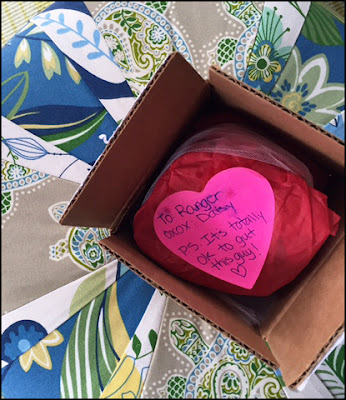 To: Ranger
oxox: Daisy
P.S. Its totally
ok to gut
this guy!
♡